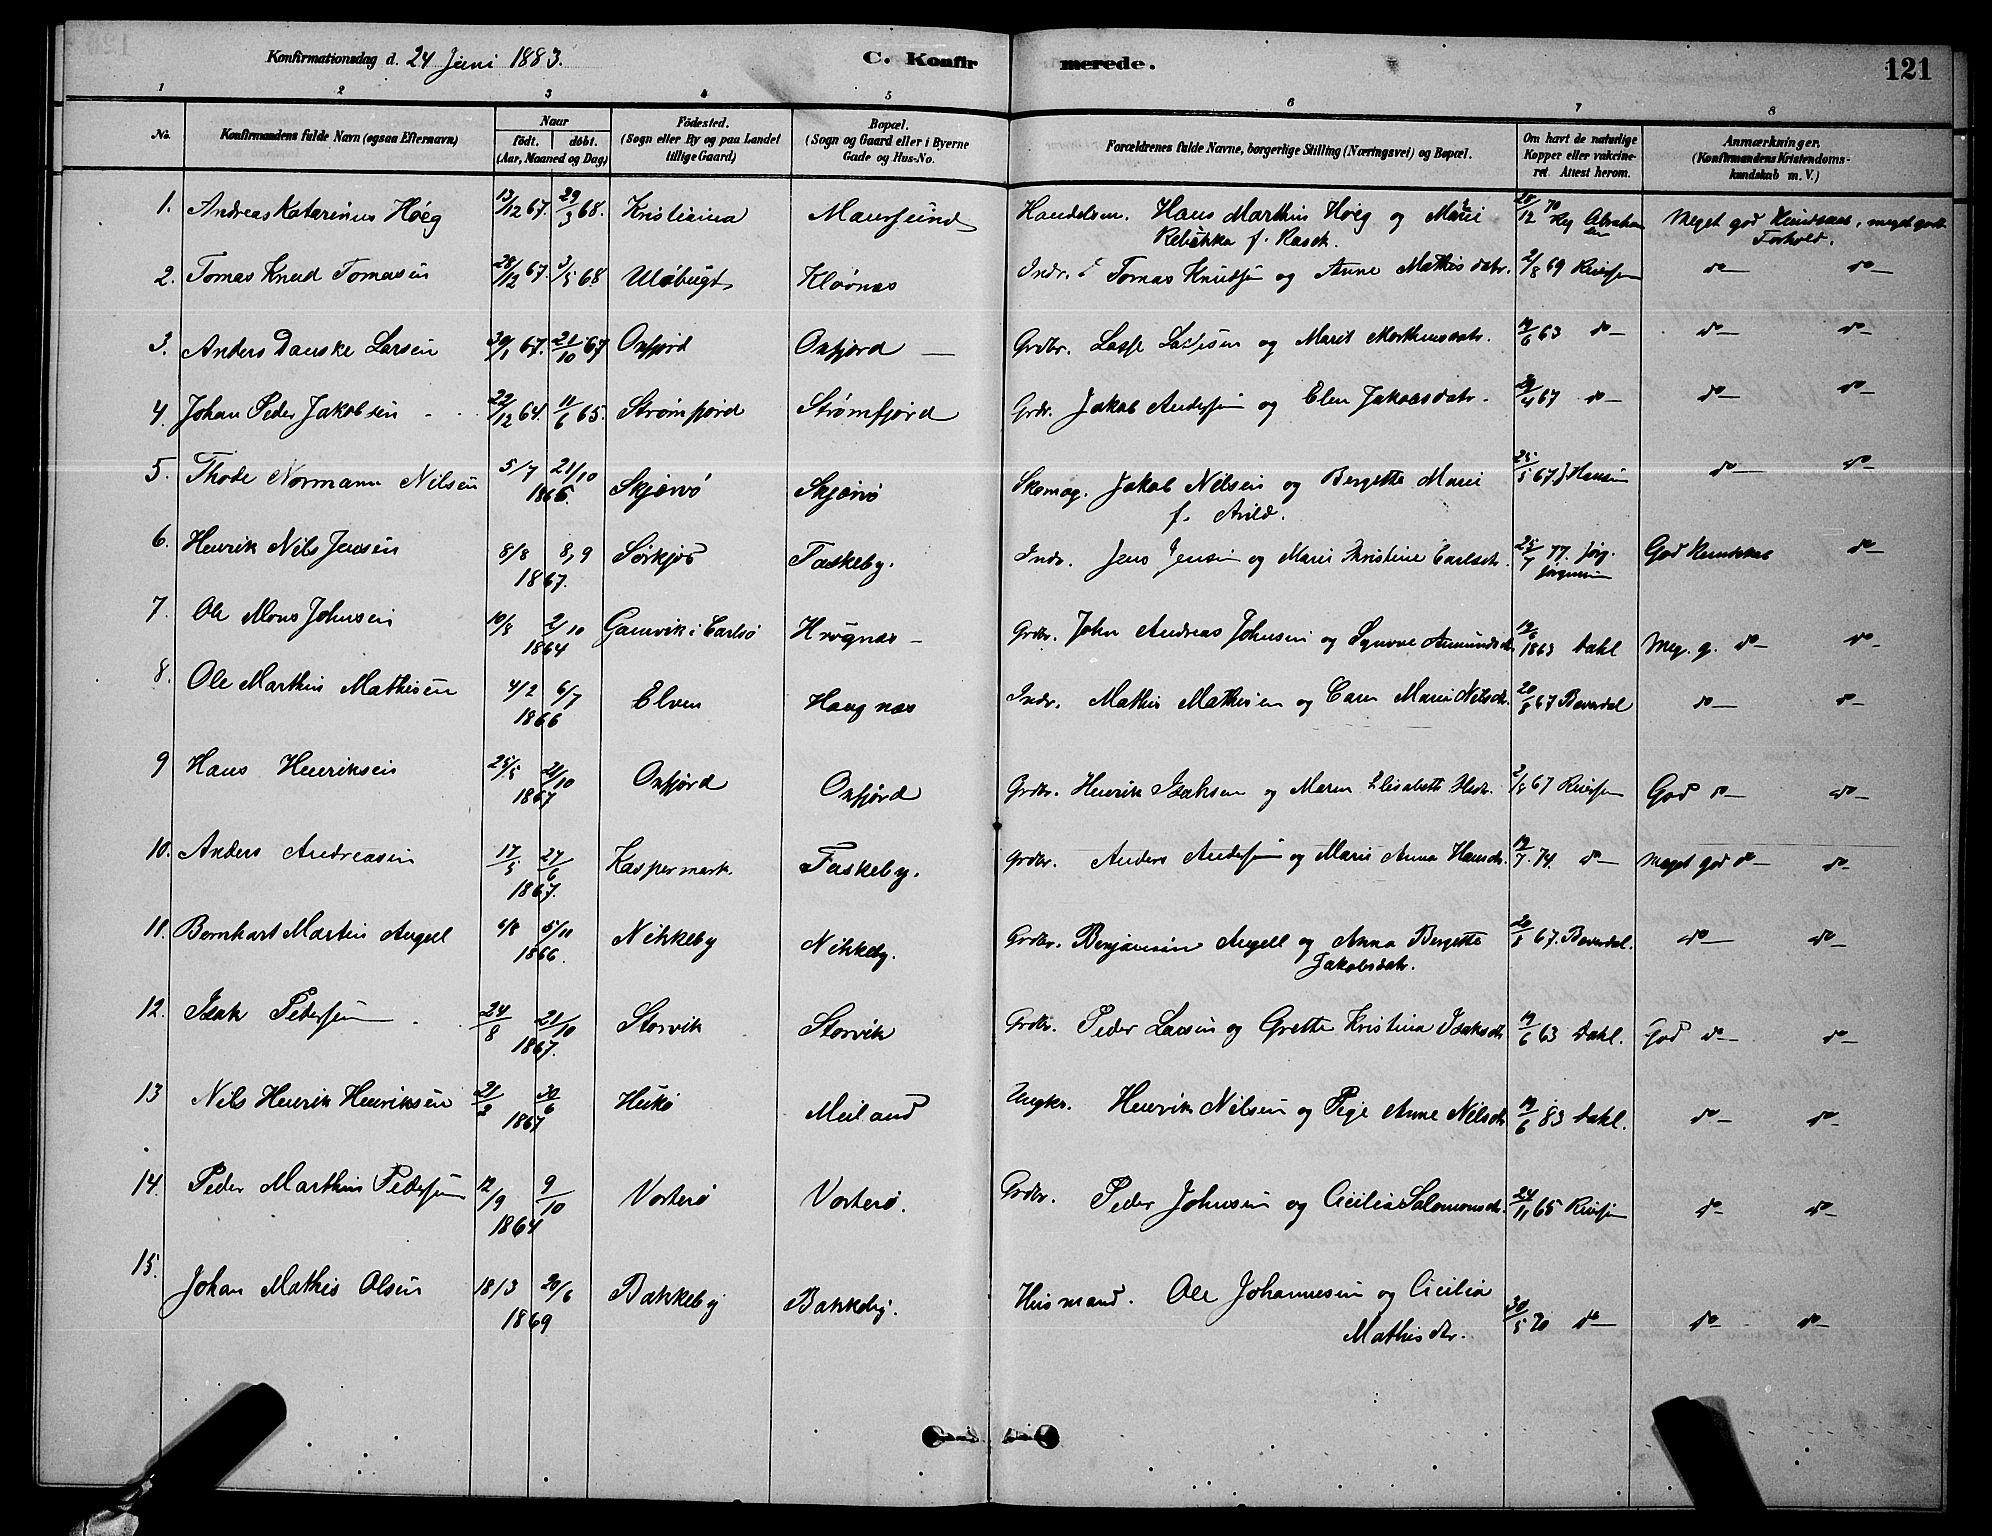 Konfirmationsdag d. 24 Juni 1883. C. Konfirmerede. 121
1 2 3 4 5 6 7 8
No. Konfirmandens fulde Navn (ogsaa Efternavn) Naar født. døbt. (Aar, Maaned og Dag) Fødested. (Sogn eller By og paa Landet tillige Gaard) Bopæl. (Sogn og Gaard eller i Byerne Gade og Hus-No. Forældrenes fulde Navne, borgerlige Stilling (Næringsvei) og Bopæl. Om havt de naturlige Kopper eller vakcineret. Attest herom. Anmærkninger. (Konfirmandens Kristendomskundskab m. V.)
1. Andreas Katarinus Høeg 13/12 67. 29/3 68. Kristiania Maursund Handelsm. Hans Marthin Høeg og Marie 20/12 70 Meget god Kundskab, meget godt
Rebekka f. Rasch. Forhold.
2. Tomas Knud Tomasen 28/12 67. 3/5 68. Uløbugt Kloønæs Indr. Tomas Knudsen og Anne Mathisdatr. 2/8 69 do do
3. Anders Danske Larsen 30/1 67. 21/10 67 Oxfjord Oxfjord Grdbr. Lasse Lassesen og Marit Morthensdatr. 19/6 63 do do do
4. Johan Peder Jakobsen 22/12 64. 11/6 65. Strømfjord Strømfjord Grdr. Jakob Andersen og Elen Jakobsdatr. 29/4 67 do do do
5. Thode Normann Nilsen 5/7 21/10 1866 Skjærvø Skjærvø Skomag. Jakob Nilsen og Bergette Marie 25/5 67. J Hansen do do
f. Arild.
6. Henrik Nils Jensen 8/8 8/9 1867. Sørkjos Taskeby. Indr. Jens Jensen og Marie Kristine Carlsdr. 25/7 77. Jørg. Jørgensen God Kundskab do
7. Ole Mons Johnsen 10/8 2/10 1864 Gamvik i Carlsø Høgnæs Grdbr. John Andreas Johnsen og Synnove Amundsdr. 19/6 1863 Dahl Meg. g. do do
8. Ole Marthin Mathisen 4/2 6/7 1866 Elven Haugnæs Indr. Mathis Mathisen og Caren Marie Nilsdr. 20/8 67 Baverdal do do
9 Hans Henriksen 25/5 21/10 1867 Oxfjord Oxfjord Grdbr. Henrik Isaksen og Maren Elisabeth Hsdr. 2/8 67 God do do
10. Anders Andreasen 17/5 27/6 1867. Kaspermark. Taskeby. Grdbr. Anders Andersen og Marie Anna Hansdr. 19/7. 74. do Meget god do do
11. Bernhart Martin Angell 6/8 5/11 1866. Nikkeby Nikkeby. Grdbr. Benjamin Angell og Anna Bergette 20/8 67. Baverdal. do do
Jakobsdatr.
12. Isak Pedersen 24/8 21/10 1867. Storvik Storvik Grdbr. Peder Larsen og Grette Kristina Isaksdr. 19/6 63 Dahl. God do do
13 Nils Henrik Henriksen 21/2 30/6 1867 Hukø Meiland Ungkr. Henrik Nilsen og Pige Anne Nilsdr. 19/6 83 Dahl. do do
14. Peder Marthin Pedersen 12/9 9/10 1864 Vorterø Vorterø. Grdbr. Peder Johnsen og Cicilia Salomonsdr. 24/11 65 do do
15. Johan Mathis Olsen 18/3 20/6 1869 Bakkeby Bakkeby. Husmand. Ole Johannesen og Cicilia
Mathisdtr. 30/5 70 do do do